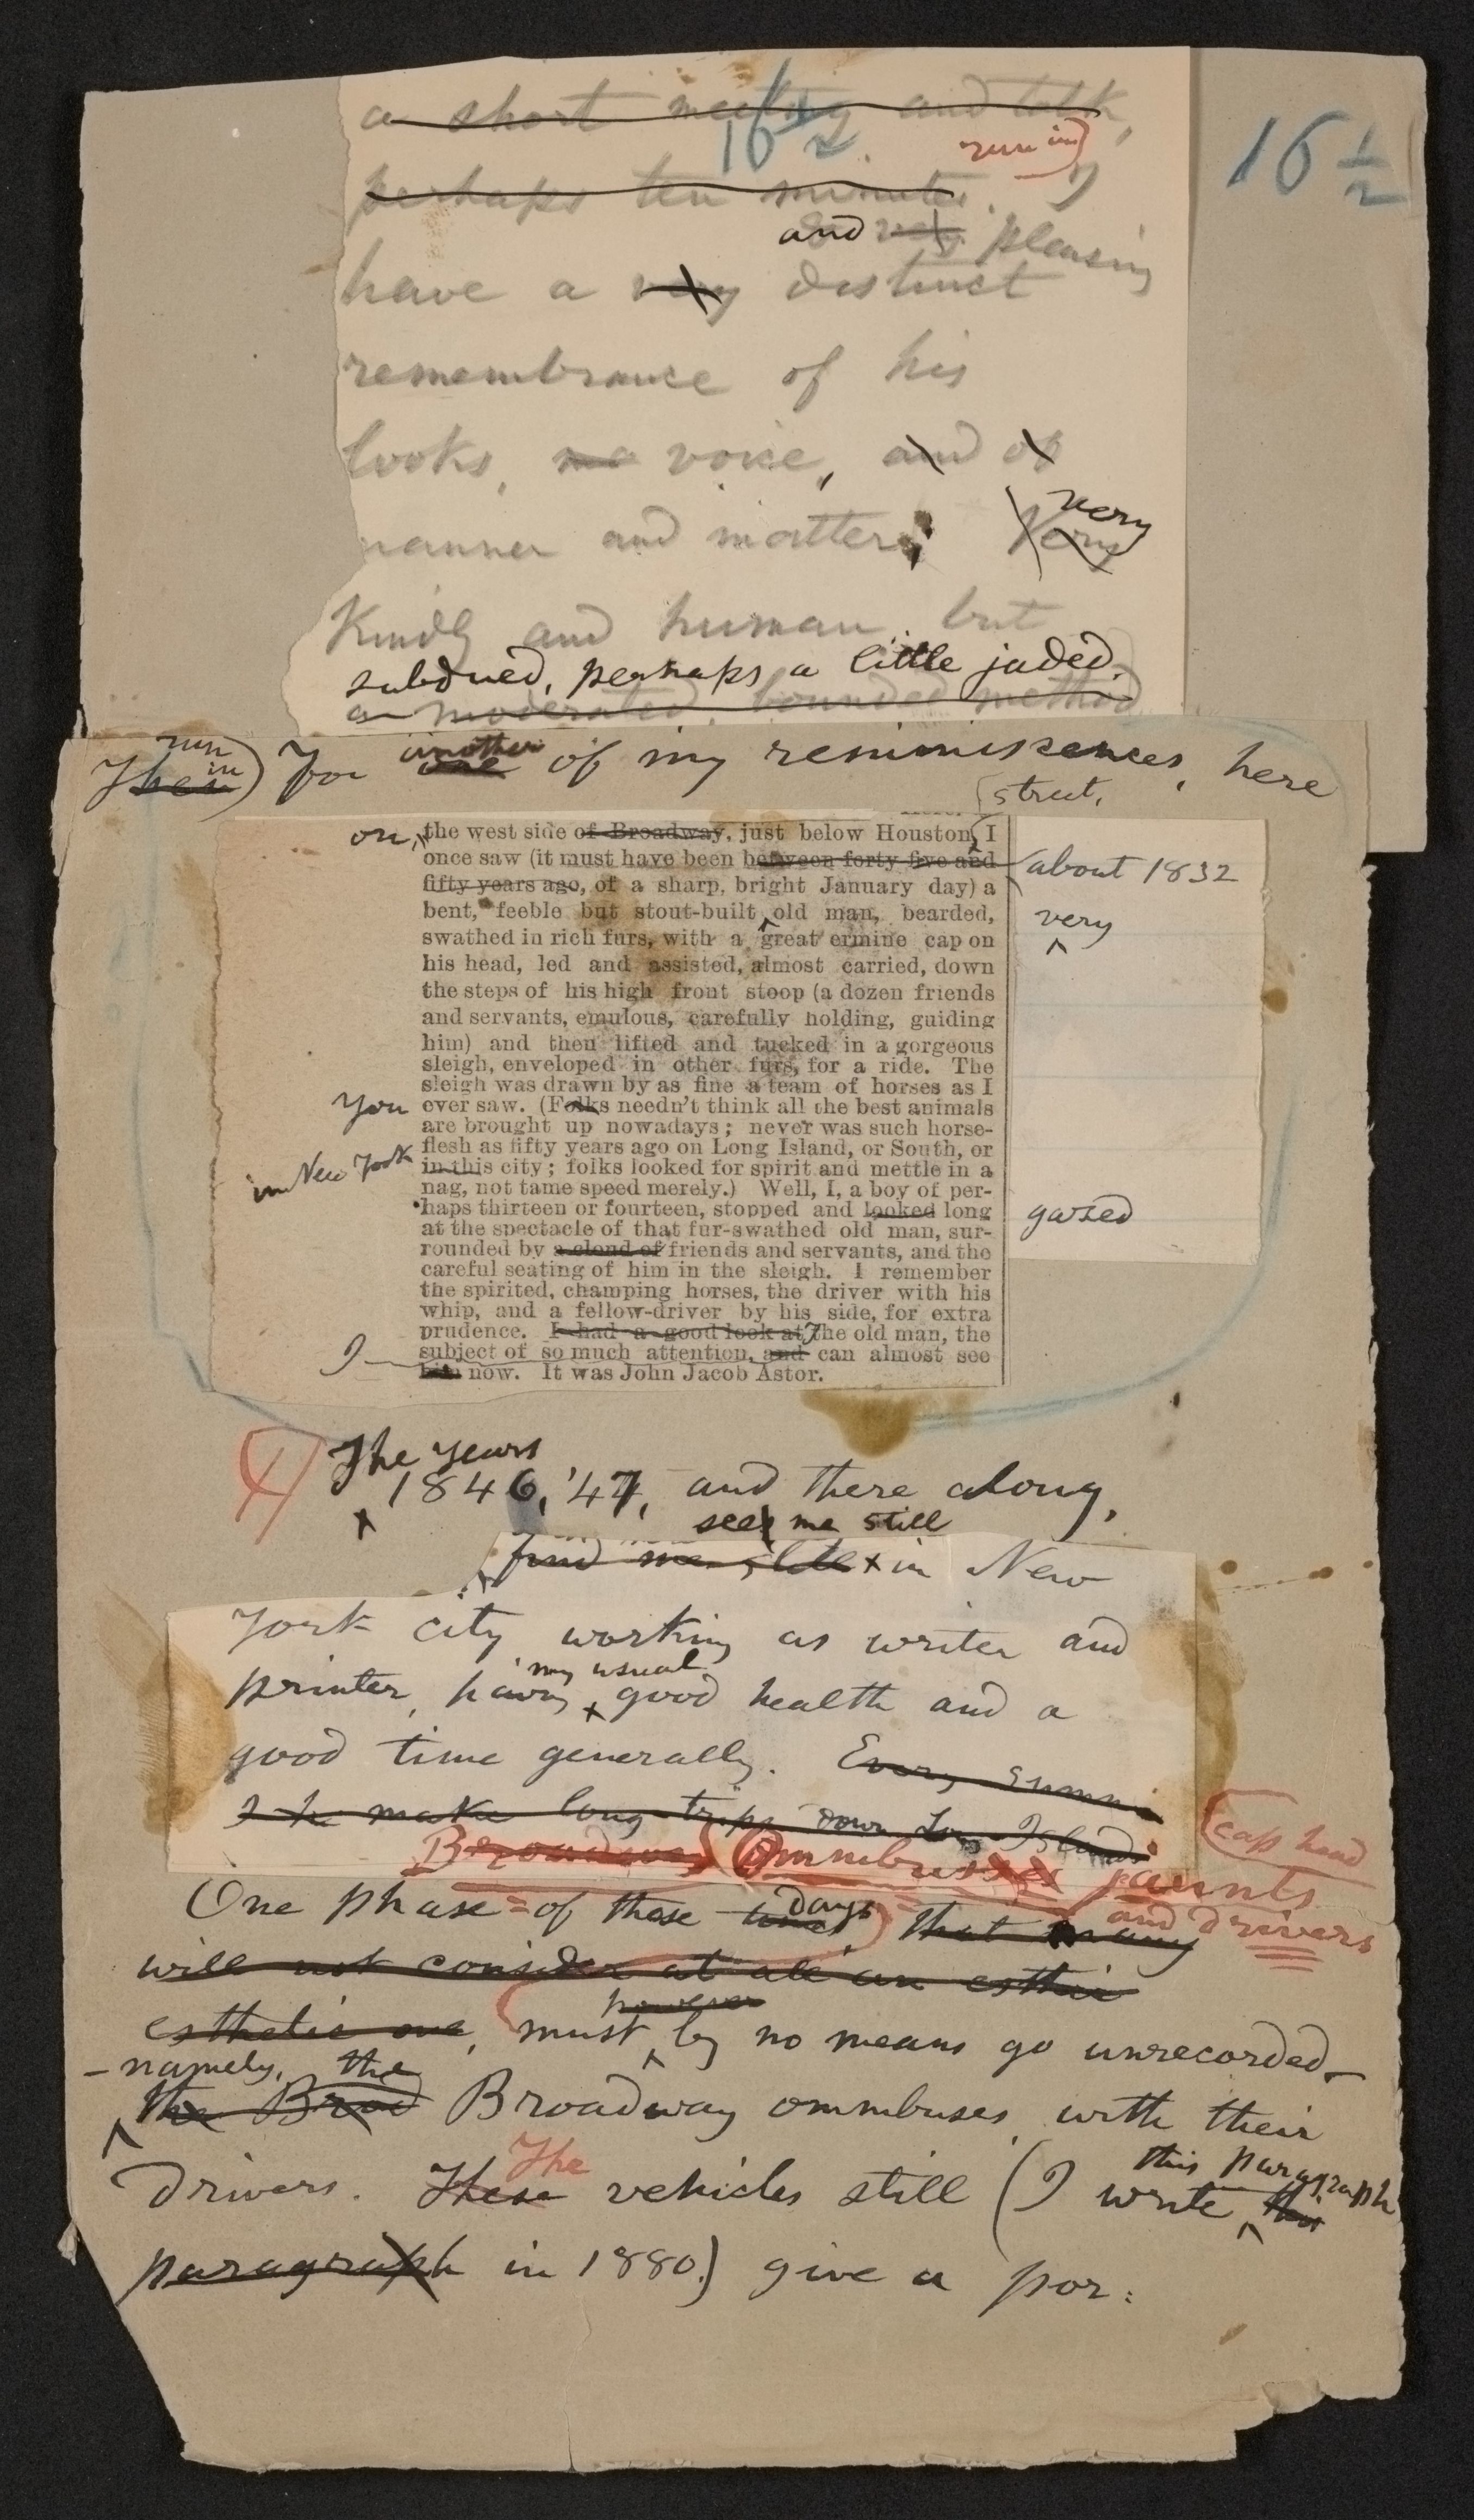 a short meeting and talk,
16 1/2
16 1/2
run in)
perhaps ten minutes. I
and very pleasing
have a very distinct
remembrance of his
looks, voice, and of
manner and matter; Very very
Kindly and human, but
subdued, perhaps a little jaded.
a moderated, bounded method
run in)
Then For one another of my reminiscences, here
street,
on the west side of Broadway, just below Houston, I
once saw (it must have been between forty five and
about 1832
fifty years ago, of a sharp, bright January day) a
bent, feeble but stout-built old man, bearded,
very
swathed in rich furs, with a great ermine cap on
his head, led and assisted, almost carried, down
the steps of his high front stoop (a dozen friends
and servants, emulous, carefully holding, guiding
him) and then lifted and tucked in a gorgeous
sleigh, enveloped in other furs, for a ride. The
sleigh was drawn by as fine a team of horses as I
You ever saw. (Folks needn't think all the best animals
are brought up nowadays; never was such horse-
flesh as fifty years ago on Long Island, or South, or
in New York in this city; folks looked for spirit and mettle in a
nag, not tame speed merely.) Well, I, a boy of per-
haps thirteen or fourteen, stopped and looked long
gazed
at the spectacle of that fur-swathed old man, sur-
rounded by a cloud of friends and servants, and the
careful seating of him in the sleigh. I remember
the spirited, champing horses, the driver with his
whip, and a fellow-driver by his side, for extra
prudence. I had a good look at The old man, the
subject of so much attention, and can almost see
I
him now. It was John Jacob Astor.
The years
1846, '47, and there along,
see me still
find me still in New
York city working as writer and
my usual
printer, having good health and a
good time generally. Every summer
I make long trips down Long Island
Broadway Omnibusses jaunts
cap head
and drivers
One phase of these times days that many
will not consider at all an esthic
esthetic one, must however by no means go unrecorded—
– namely, the
the Broad Broadway omnibuses, with their
drivers. These The vehicles still (I write this this paragraph
paragraph in 1880) give a por: